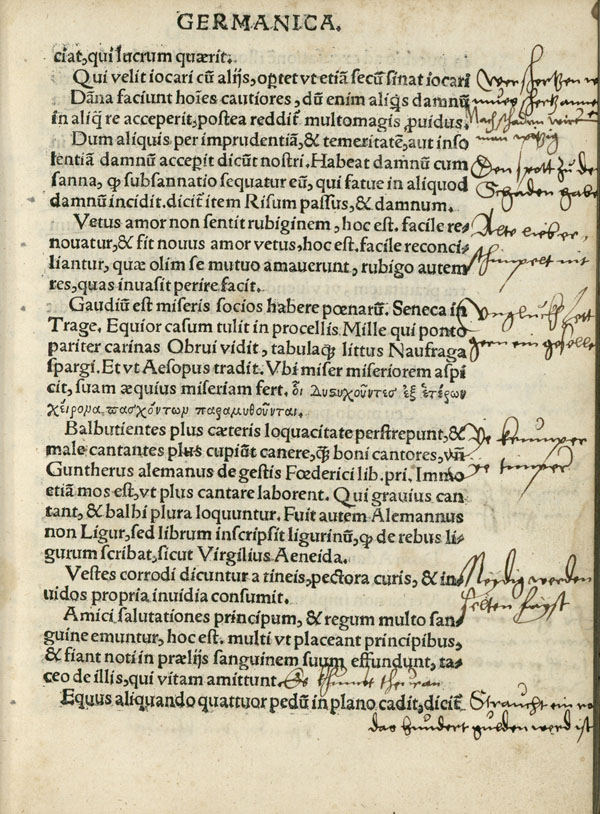 GERMANICA.
ciat, qui lucrum quærit.
Qui velit iocari cū alijs, oꝑtet vt etiā secū sinat iocari
Dāna faciunt hoīes cautiores, dū enim aliq̇s damnū
in aliq̄ re acceperit, postea redditˀ multomagis ꝓuidus.
Dum aliquis per imprudentiā, & temeritatē, aut inso
lentiā damnū accepit dicūt nostri. Habeat damnū cum
sanna, ꝙ subsannatio sequatur eū, qui fatue in aliquod
damnū incidit. dicitˀ item Risum passus, & damnum.
Vetus amor non sentit rubiginem, hoc est. facile re-
nouatur, & fit nouus amor vetus, hoc est. facile reconci-
liantur, quæ olim se mutuo amauerunt, rubigo autem
res, quas inuasit perire facit.
Gaudiū est miseris socios habere pœnarū. Seneca in
Trage. Equior casum tulit in procellis Mille qui ponto
pariter carinas Obrui vidit, tabulaq̃ littus Naufraga
spargi. Et vt Aesopus tradit. Vbi miser miseriorem aspi
cit, suam æquius miseriam fert. οἱ Δυσυχοῦντεσ ἐξ ἑτέρων
χείρομα πασχόντωμ παραμυθοῦνται.
Balbutientes plus cæteris loquacitate perstrepunt, &
male cantantes plus cupiūt canere, q̃ boni cantores, vñ
Guntherus alemanus de gestis Fœderici lib. pri. Immo
etiā mos est, vt plus cantare laborent. Qui grauius can
tant, & balbi plura loquuntur. Fuit autem Alemannus
non Ligur, sed librum inscripsit ligurinū, ꝙ de rebus li-
gurum scribat, sicut Virgilius Aeneida.
Vestes corrodi dicuntur a tineis, pectora curis, & in-
uidos propria inuidia consumit.
Amici salutationes principum, & regum multo san-
guine emuntur, hoc est. multi vt placeant principibus,
& fiant noti in prælijs sanguinem suum effundunt, ta-
ceo de illis, qui vitam amittunt
Equus aliquando quattuor pedū in plano cadit, dicitˀ
Wer schertzen w
mueß schertzen
Nach schaden wirt
man witzig
Den spott zu de
Schaden habe
Alte lieb er
schimpelt nit
Unglückh hett
gern ein geselle
Ye krumper
ye timper
Neydig werden
selten faist
Es kumbt theur an
Straucht ein ro
das hundert gulden werd ist